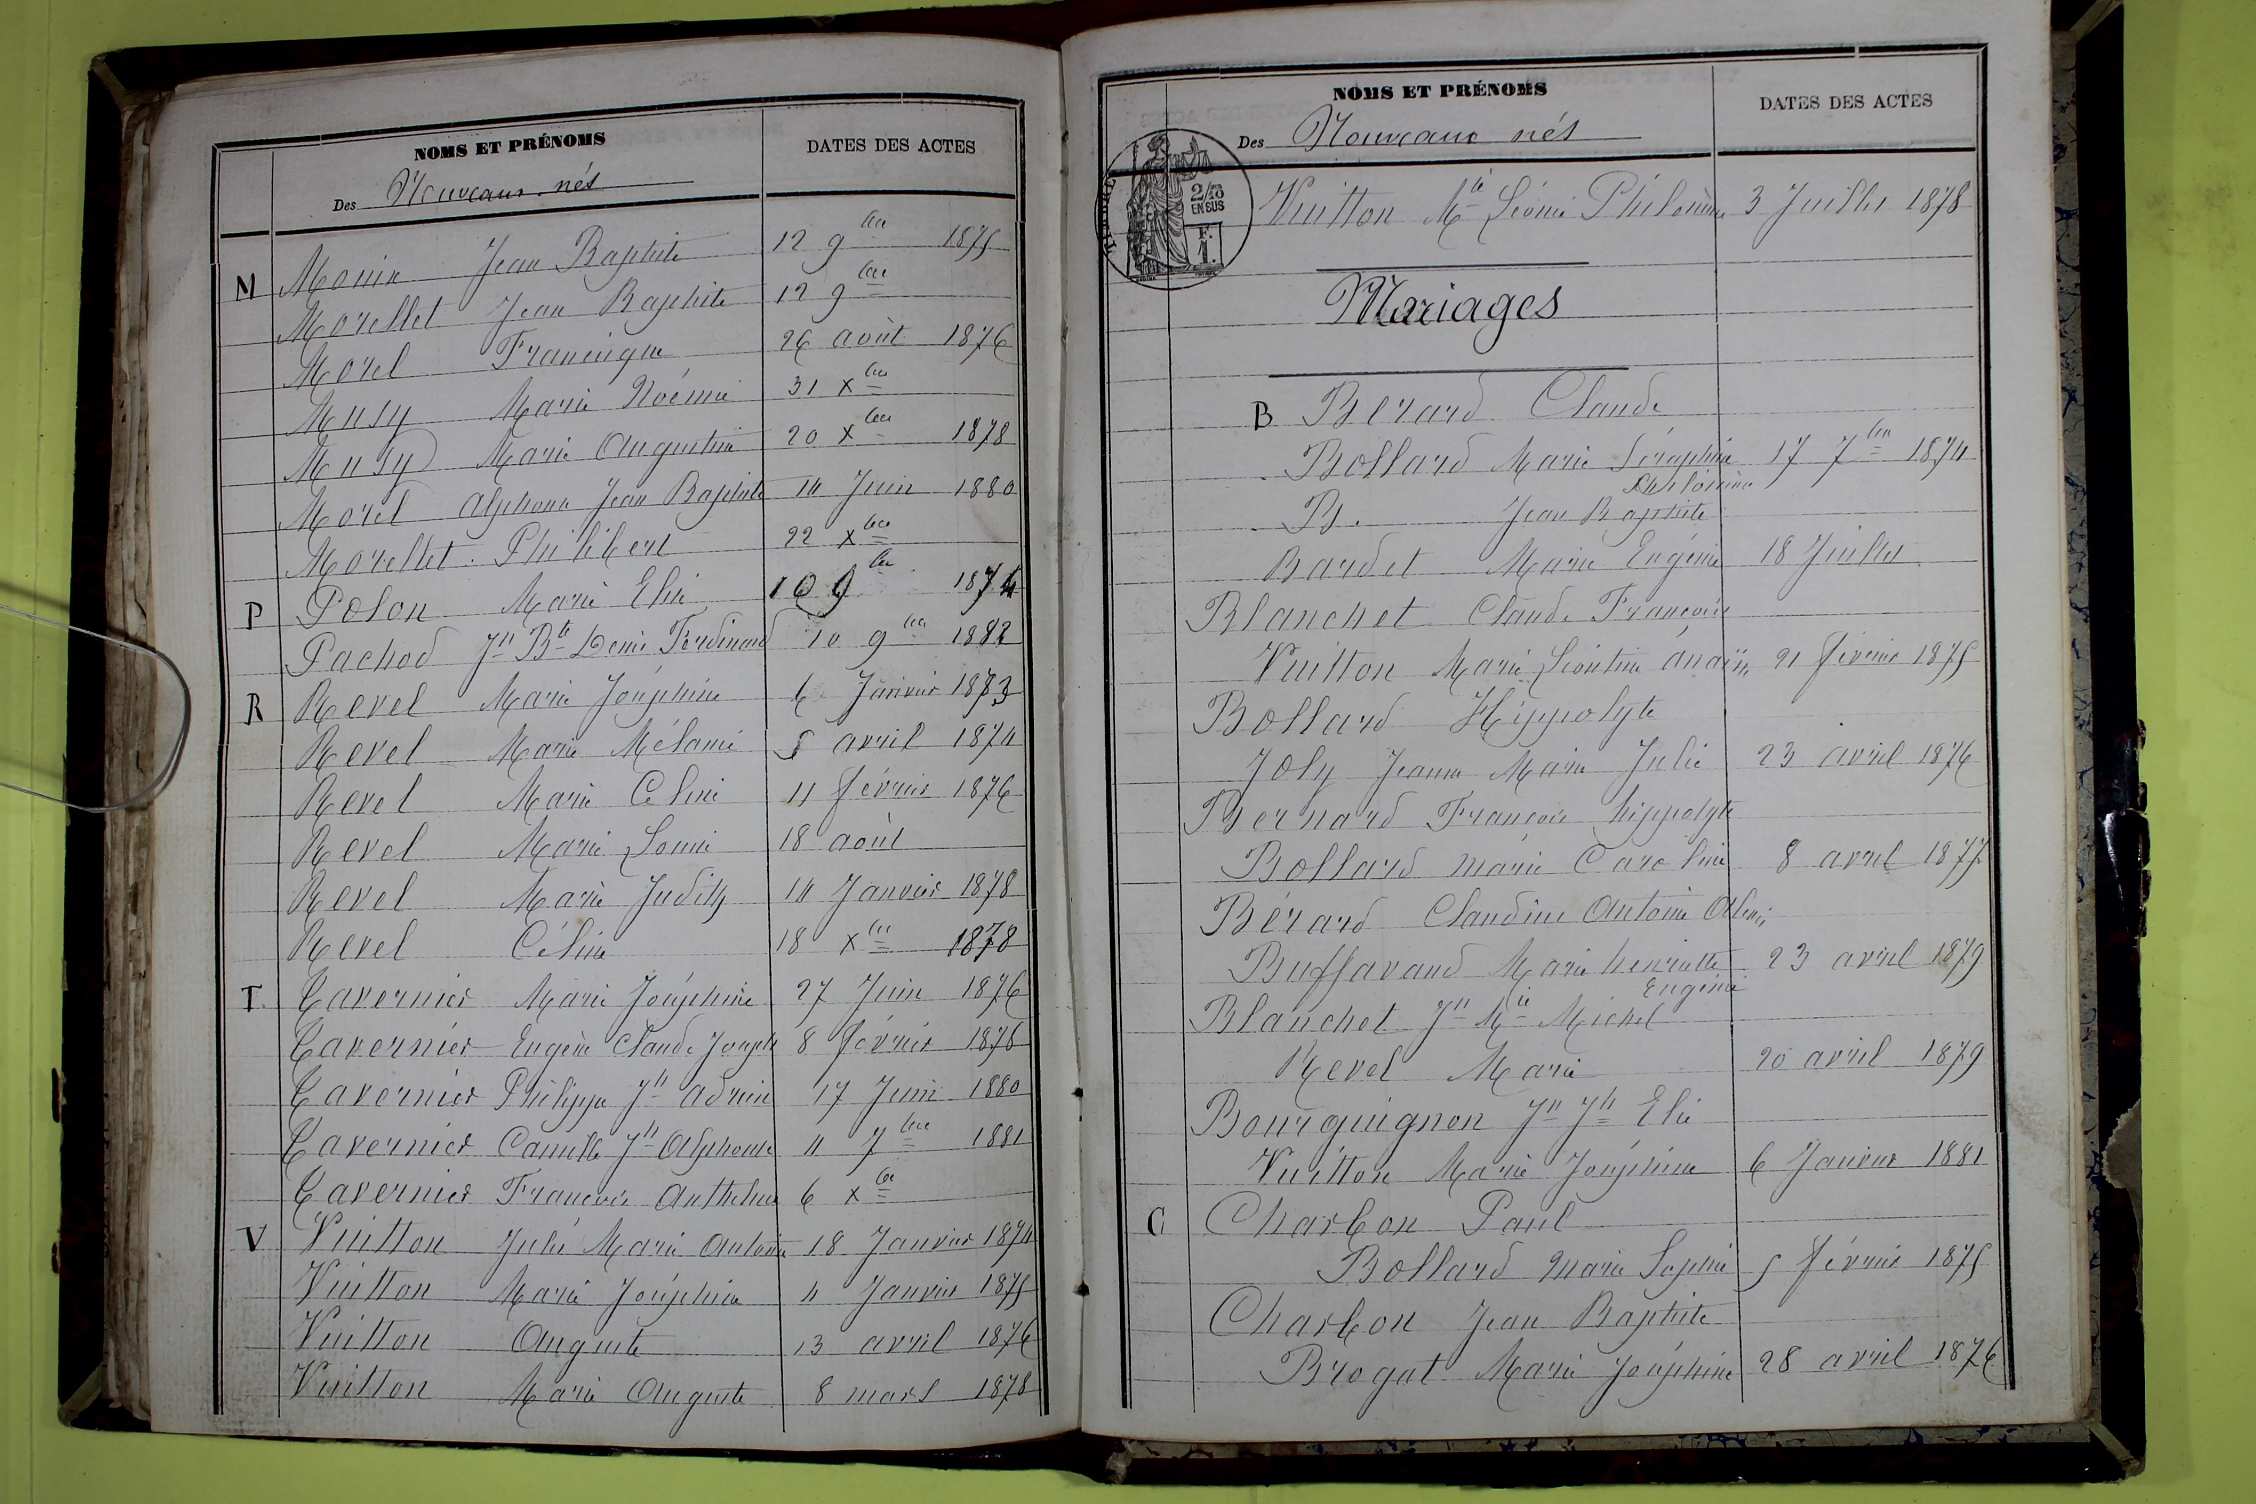 NOMS ET PRÉNOMS
DATES DES ACTES
Des Nouveaux nés
M Monin Jean Baptiste 12 9bre 1875
Morellet Jean Baptiste 12 9bre
Morel Francisque 26 août 1876
Musy Marie Noémie 31 xbre
Musy Marie Augustin 20 xbre 1878
Morel Alphonse Jean Baptiste 14 Juin 1880
Morellet Philibert 22 xbre
P Polon Marie Elie 10 9bre 1874
Pachod Jn Bte Denis Ferdinand 10 9bre 1882
R Revel Marie Joséphine 6 Janvier 1873
Revel Marie Mélanie 5 avril 1874
Revel Marie Celine 11 février 1876
Revel Marie 18 août
Revel Marie Judith 14 Janvier 1878
Revel Céline 18 xbre 1878
T. Tavernier Marie Joséphine 27 Juin 1876
Tavernier Eugène Claude Joseph 8 février 1878
Tavernier Philippe Jh Adrien 17 Juin 1880
Tavernier Camille Jh Alphonse 11 7bre 1881
Tavernier François Anthelme 6 xbre
V Vuitton Julie Marie Antoine 18 Janvier 1874
Vuitton Marie Joséphine 4 Janvier 1875
Vuitton Auguste 13 avril 1876
Vuitton Marie Auguste 8 mars 1878
NOMS ET PRÉNOMS
DATES DES ACTES
Des Nouveaux nés
2/10 EN SUS
F. 1.
Vuitton Mie Léonie Philomène 3 Juillet 1878
Mariages
B Bérard Claude
Bollard Marie Séraphie 17 7bre 1874
Philomène
B. Jean Baptiste
Bardet Marie Eugénie 18 Juillet
Blanchet Claude François
Vuitton Marie Léontine Anaïs 21 février 1875
Bollard Hippolyte
Joly Jeanne Marie Julie 23 avril 1876
Bernard François hippolyte
Bollard Marie Caroline 8 avril 1877
Bérard Claudine Antoine
Buffavand Marie henriette 23 avril 1879
Eugénie
Blanchet Jn Mie Michel
Revel Marie 20 avril 1879
Bourguignon Jn Jh Elie
Vuitton Marie Joséphine 6 Janvier 1881
C Charbon Paul
Bollard Marie Sophie 5 février 1875
Charbon Jean Baptiste
Brogat Marie Joséphine 28 avril 1876